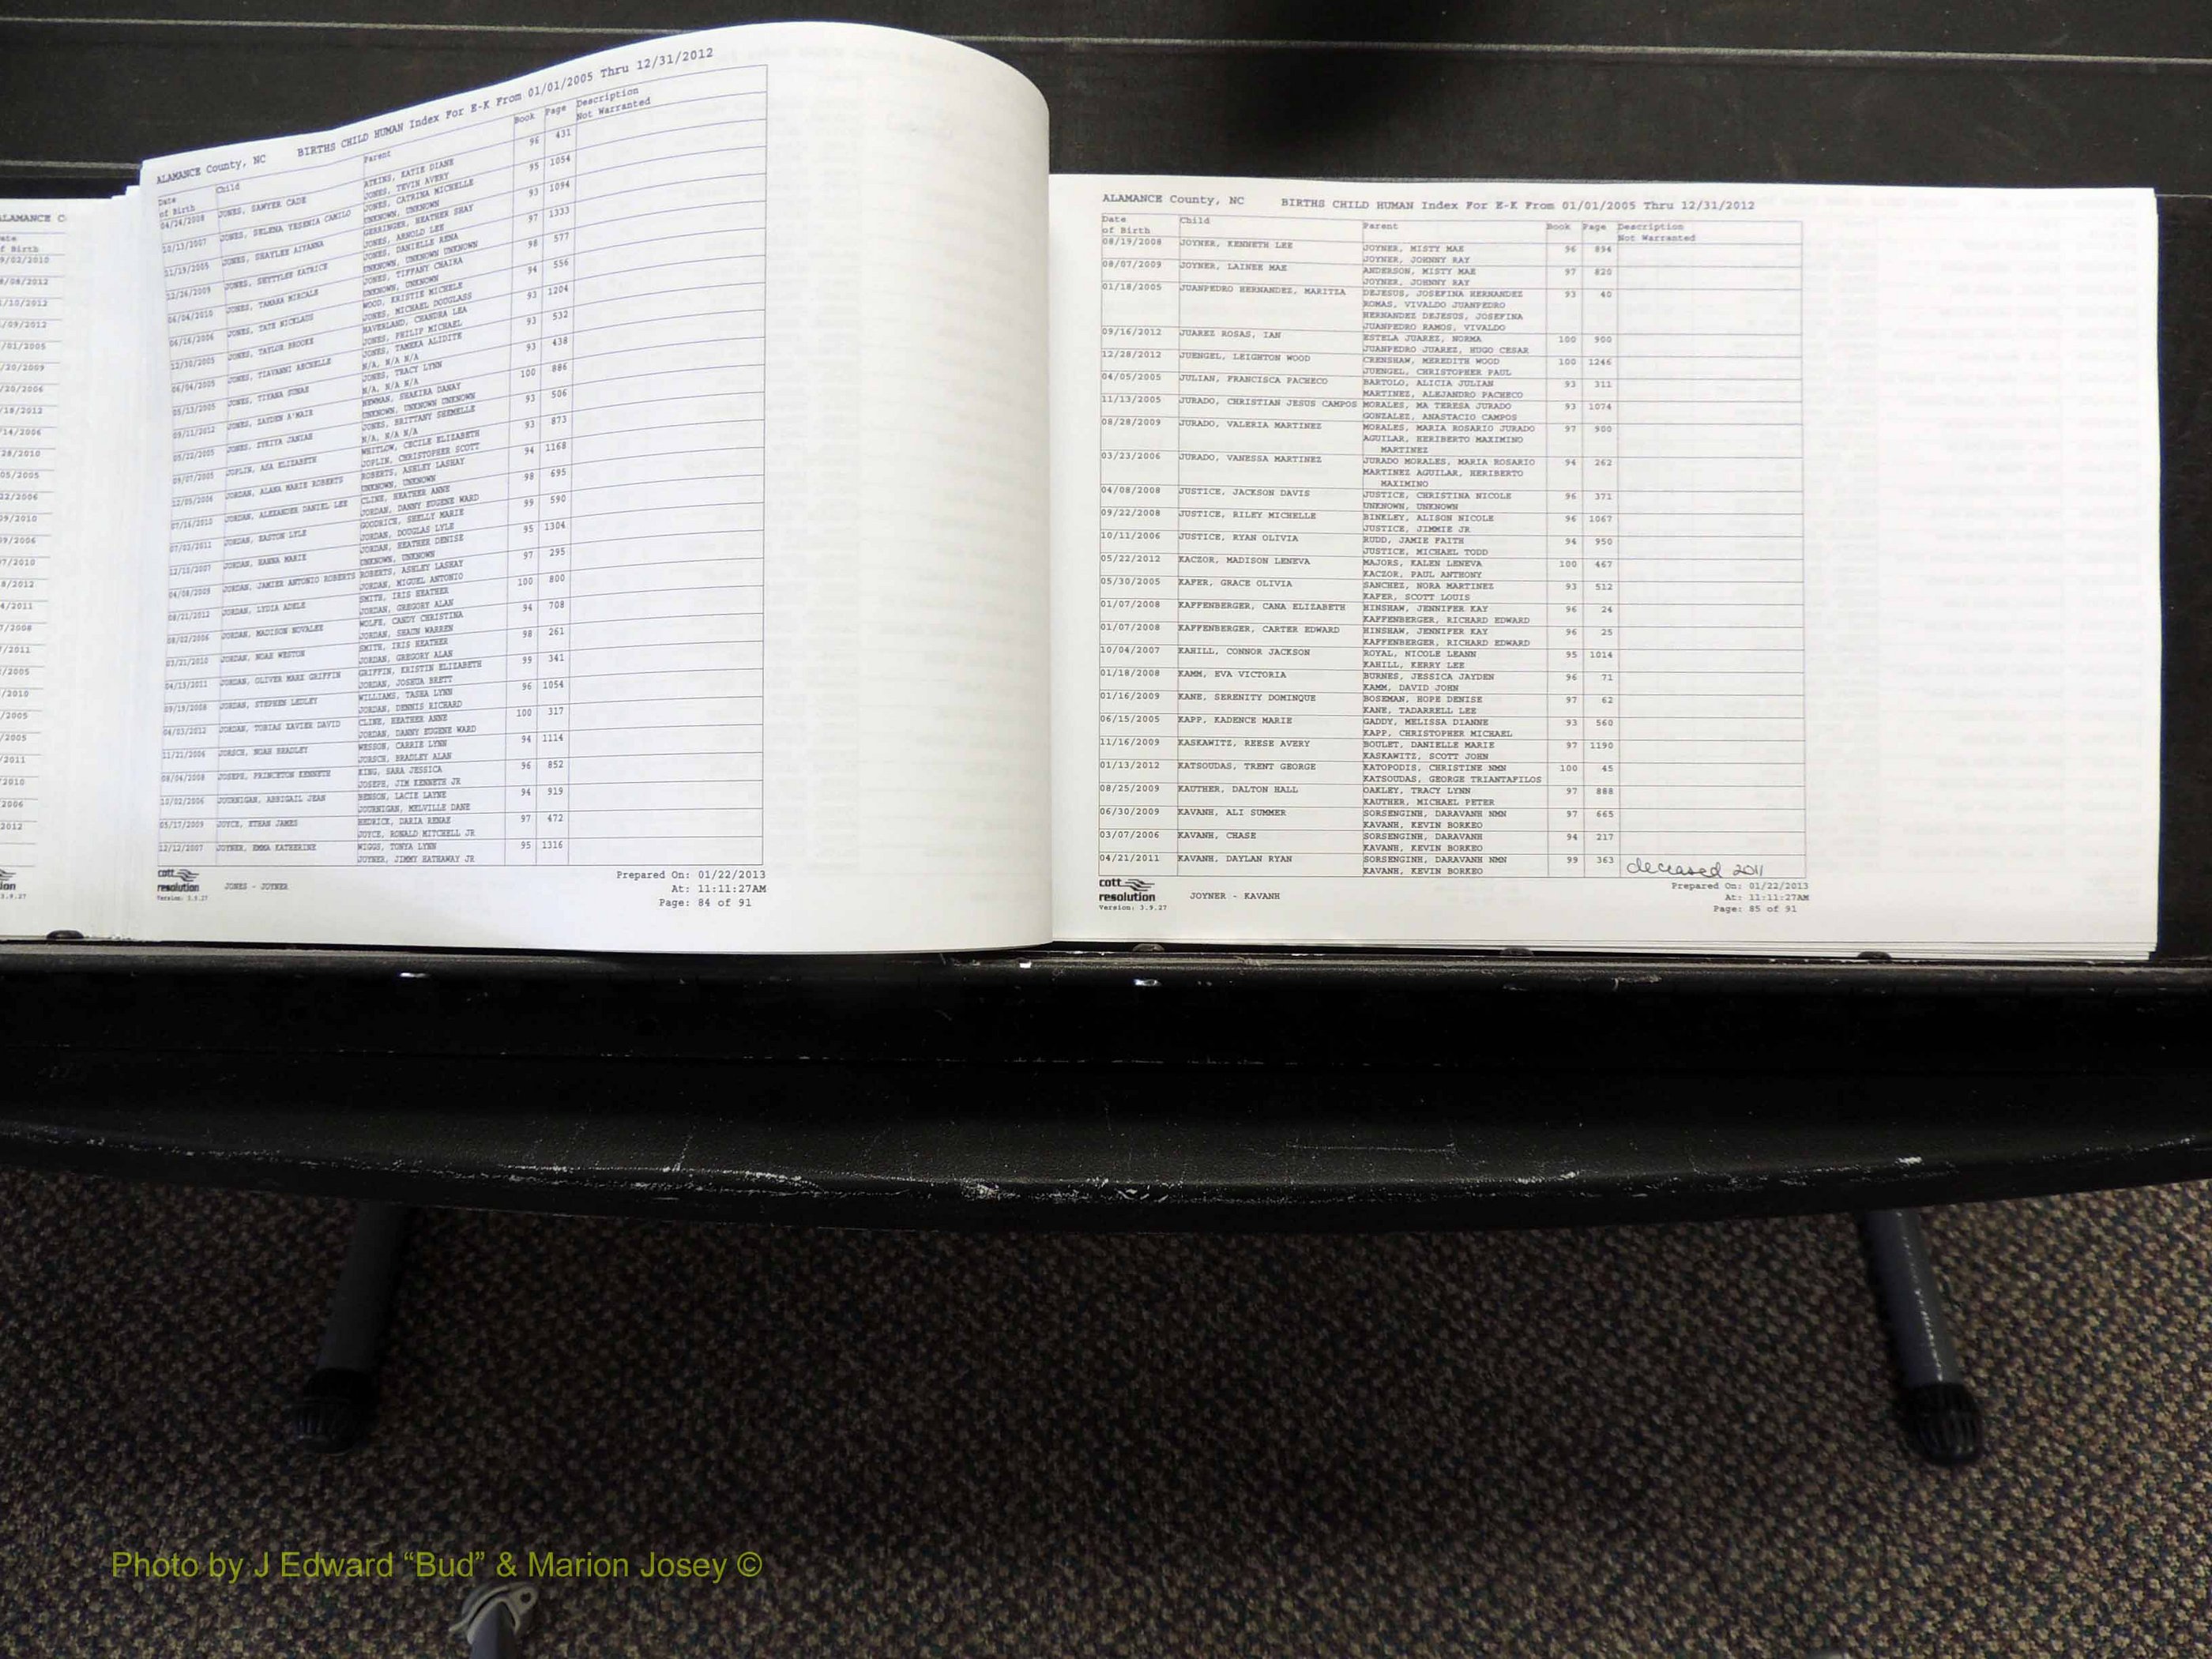 ALAMANCE C
9/02/2010
8/08/2012
/10/2012
/09/2012
/01/2005
/20/2009
/20/2006
/18/2012
/14/2006
ALAMANCE County, NC BIRTHS CHILD HUMAN Index For E-K From 01/01/2005 Thru 12/31/2012
Date of Birth Child Parent Book Page Description Not Warranted
04/24/2008 JONES, SAWYER CADE ATKINS, KATIE DIANE 96 431
JONES, TEVIN AVERY
10/13/2007 JONES, SELENA YESENIA CAMILO JONES, CATRINA MICHELLE 95 1054
UNKNOWN, UNKNOWN
11/19/2005 JONES, SHAYLEE AIYANNA GERRINGER, HEATHER SHAY 93 1094
JONES, ARNOLD LEE
12/26/2009 JONES, SHYTTLES KATRICE JONES, DANIELLE RENA 97 1333
UNKNOWN, UNKNOWN UNKNOWN
06/04/2010 JONES, TAMARA MIRCALE JONES, TIFFANY CHAIRA 98 577
UNKNOWN, UNKNOWN
06/16/2006 JONES, TATE NICKLAUS WOOD, KRISTIE MICHELE 94 556
JONES, MICHAEL DOUGLASS
12/30/2005 JONES, TAYLOR BROOKE HAVERLAND, CHANDRA LEA 93 1204
JONES, PHILIP MICHAEL
06/04/2005 JONES, TIAVANNI ARCHELLE JONES, TAMEKA ALIDITE 93 532
N/A, N/A N/A
05/13/2005 JONES, TIYANA SUNAE JONES, TRACY LYNN 93 438
N/A, N/A N/A
09/11/2012 JONES, ZAYDEN A'MAIR NEWMAN, SHAKIRA DANAY 100 886
UNKNOWN, UNKNOWN UNKNOWN
05/22/2005 JONES, ZYKIYA JANIAH JONES, BRITTANY SHEMELLE 93 506
N/A, N/A N/A
09/07/2005 JOPLIN, ASA ELIZABETH WHITLOW, CECILE ELIZABETH 93 873
JOPLIN, CHRISTOPHER SCOTT
12/05/2006 JORDAN, ALANA MARIE ROBERTS ROBERTS, ASHLEY LASHAY 94 1168
UNKNOWN, UNKNOWN
07/16/2010 JORDAN, ALEXANDER DANIEL LEE CLINE, HEATHER ANNE 98 695
JORDAN, DANNY EUGENE WARD
07/03/2011 JORDAN, EASTON LYLE GOODRICH, SHELLY MARIE 99 590
JORDAN, DOUGLAS LYLE
12/10/2007 JORDAN, HANNA MARIE JORDAN, HEATHER DENISE 95 1304
UNKNOWN, UNKNOWN
04/08/2009 JORDAN, JAMIER ANTONIO ROBERTS ROBERTS, ASHLEY LASHAY 97 295
JORDAN, MIGUEL ANTONIO
08/21/2012 JORDAN, LYDIA ADELE SMITH, IRIS HEATHER 100 800
JORDAN, GREGORY ALAN
08/02/2006 JORDAN, MADISON NOVALEE WOLFE, CANDY CHRISTINA 94 708
JORDAN, SHAUN WARREN
03/21/2010 JORDAN, NOAH WESTON SMITH, IRIS HEATHER 98 261
JORDAN, GREGORY ALAN
04/13/2011 JORDAN, OLIVER MARX GRIFFIN GRIFFIN, KRISTIN ELIZABETH 99 341
JORDAN, JOSHUA BRETT
09/19/2008 JORDAN, STEPHEN LEDLEY WILLIAMS, TASHA LYNN 96 1054
JORDAN, DENNIS RICHARD
04/03/2012 JORDAN, TOBIAS XAVIER DAVID CLINE, HEATHER ANNE 100 317
JORDAN, DANNY EUGENE WARD
11/21/2006 JORSCH, NOAH BRADLEY WESSON, CARRIE LYNN 94 1114
JORSCH, BRADLEY ALAN
08/06/2008 JOSEPH, PRINCETON KENNETH KING, SARA JESSICA 96 852
JOSEPH, JIM KENNETH JR
10/02/2006 JOURNIGAN, ABBIGAIL JEAN BENSON, LACIE LAYNE 94 919
JOURNIGAN, MELVILLE DANE
05/17/2009 JOYCE, ETHAN JAMES HEDRICK, DARIA RENAE 97 472
JOYCE, RONALD MITCHELL JR
12/12/2007 JOYNER, EMMA KATHERINE WIGGS, TONYA LYNN 95 1316
JOYNER, JIMMY HATHAWAY JR
cott resolution Version: 3.9.27
JONES - JOYNER
Prepared On: 01/22/2013
At: 11:11:27AM
Page: 84 of 91
ALAMANCE County, NC BIRTHS CHILD HUMAN Index For E-K From 01/01/2005 Thru 12/31/2012
Date of Birth Child Parent Book Page Description Not Warranted
08/19/2008 JOYNER, KENNETH LEE JOYNER, MISTY MAE 96 894
JOYNER, JOHNNY RAY
08/07/2009 JOYNER, LAINEE MAE ANDERSON, MISTY MAE 97 820
JOYNER, JOHNNY RAY
01/18/2005 JUANPEDRO HERNANDEZ, MARITZA DEJESUS, JOSEFINA HERNANDEZ 93 40
ROMAS, VIVALDO JUANPEDRO
HERNANDEZ DEJESUS, JOSEFINA
JUANPEDRO RAMOS, VIVALDO
09/16/2012 JUAREZ ROSAS, IAN ESTELA JUAREZ, NORMA 100 900
JUANPEDRO JUAREZ, HUGO CESAR
12/28/2012 JUENGEL, LEIGHTON WOOD CRENSHAW, MEREDITH WOOD 100 1246
JUENGEL, CHRISTOPHER PAUL
04/05/2005 JULIAN, FRANCISCA PACHECO BARTOLO, ALICIA JULIAN 93 311
MARTINEZ, ALEJANDRO PACHECO
11/13/2005 JURADO, CHRISTIAN JESUS CAMPOS MORALES, MA TERESA JURADO 93 1074
GONZALEZ, ANASTACIO CAMPOS
08/28/2009 JURADO, VALERIA MARTINEZ MORALES, MARIA ROSARIO JURADO 97 900
AGUILAR, HERIBERTO MAXIMINO
MARTINEZ
03/23/2006 JURADO, VANESSA MARTINEZ JURADO MORALES, MARIA ROSARIO 94 262
MARTINEZ AGUILAR, HERIBERTO
MAXIMINO
04/08/2008 JUSTICE, JACKSON DAVIS JUSTICE, CHRISTINA NICOLE 96 371
UNKNOWN, UNKNOWN
09/22/2008 JUSTICE, RILEY MICHELLE BINKLEY, ALISON NICOLE 96 1067
JUSTICE, JIMMIE JR
10/11/2006 JUSTICE, RYAN OLIVIA RUDD, JAMIE FAITH 94 950
JUSTICE, MICHAEL TODD
05/22/2012 KACZOR, MADISON LENEVA MAJORS, KALEN LENEVA 100 467
KACZOR, PAUL ANTHONY
05/30/2005 KAFER, GRACE OLIVIA SANCHEZ, NORA MARTINEZ 93 512
KAFER, SCOTT LOUIS
01/07/2008 KAFFENBERGER, CANA ELIZABETH HINSHAW, JENNIFER KAY 96 24
KAFFENBERGER, RICHARD EDWARD
01/07/2008 KAFFENBERGER, CARTER EDWARD HINSHAW, JENNIFER KAY 96 25
KAFFENBERGER, RICHARD EDWARD
10/04/2007 KAHILL, CONNOR JACKSON ROYAL, NICOLE LEANN 95 1014
KAHILL, KERRY LEE
01/18/2008 KAMM, EVA VICTORIA BURNES, JESSICA JAYDEN 96 71
KAMM, DAVID JOHN
01/16/2009 KANE, SERENITY DOMINQUE BOSEMAN, HOPE DENISE 97 62
KANE, TADARRELL LEE
06/15/2005 KAPP, KADENCE MARIE GADDY, MELISSA DIANNE 93 560
KAPP, CHRISTOPHER MICHAEL
11/16/2009 KASKAWITZ, REESE AVERY BOULET, DANIELLE MARIE 97 1190
KASKAWITZ, SCOTT JOHN
01/13/2012 KATSOUDAS, TRENT GEORGE KATOPODIS, CHRISTINE NMN 100 45
KATSOUDAS, GEORGE TRIANTAFILOS
08/25/2009 KAUTHER, DALTON HALL OAKLEY, TRACY LYNN 97 888
KAUTHER, MICHAEL PETER
06/30/2009 KAVANH, ALI SUMMER SORSENGINH, DARAVANH NMN 97 665
KAVANH, KEVIN BORKEO
03/07/2006 KAVANH, CHASE SORSENGINH, DARAVANH 94 217
KAVANH, KEVIN BORKEO
04/21/2011 KAVANH, DAYLAN RYAN SORSENGINH, DARAVANH NMN 99 363 deceased 2011
KAVANH, KEVIN BORKEO
cott resolution Version: 3.9.27
JOYNER - KAVANH
Prepared On: 01/22/2013
At: 11:11:27AM
Page: 85 of 91
Photo by J Edward “Bud” & Marion Josey ©